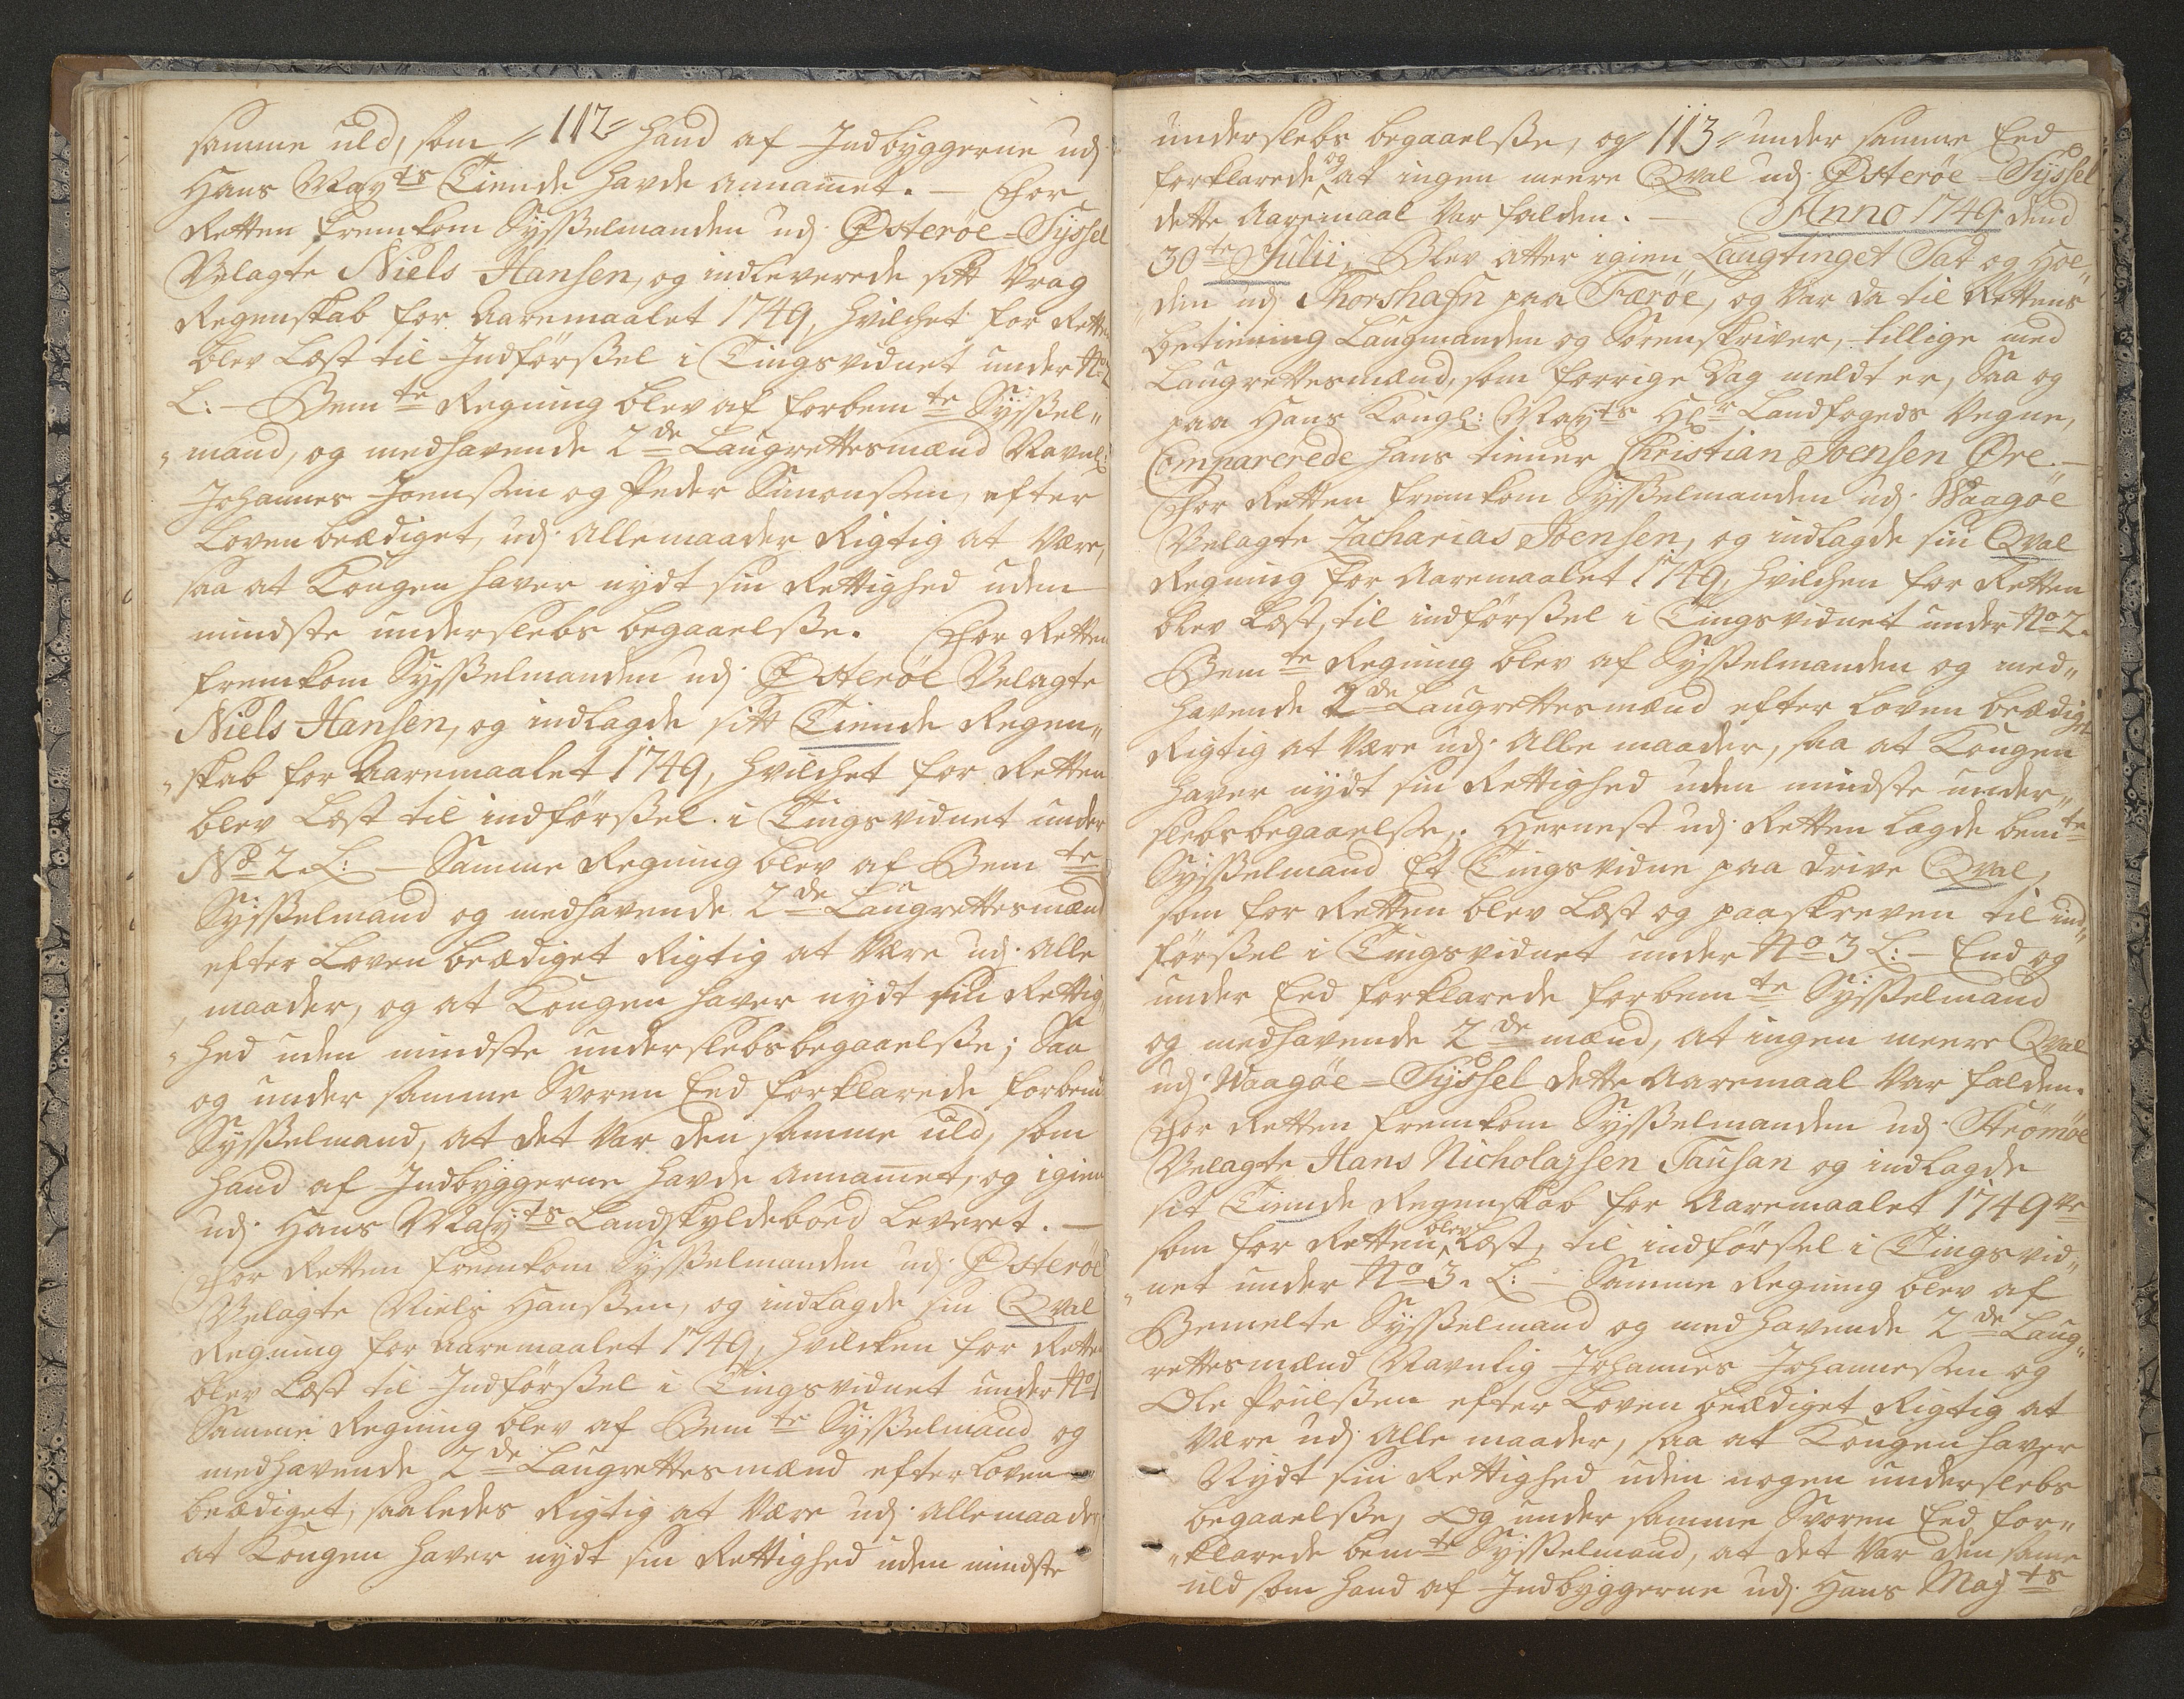 "112"
samme uld, som hand af Indbyggerne udj
Hans Mayts Tiende havde annammet. — For
Retten fremkom Sysselmanden udj Østerøe-Syssel
Velagte Niels Hansen, og indleverede sitt Vrag
Regenskab for Aaremaalet 1749, hvilchet for Retten
blev Læst til Indførssel i Tingsvidnet under No 2
L: — Bemte Regning blev af forbemte Syssel„
„mand, og medhavende 2de Laugrettesmænd Navnl:
Johannes Joenssen og Peder Simonssen, efter
Loven beædiget, udj Allemaader Rigtig at være,
saa at Kongen haver nydt sin Rettighed uden
mindste underslebs begaaelsse. For Retten
fremkom Sysselmanden udj Østerøe Velagte
Niels Hansen, og indlagde sitt Tiende Regen„
„skab for Aaremaalet 1749, hvilchet for Retten
blev Læst til indførssel i Tingsvidnet under
No 2. L: — Samme Regning blev af Bemte
Sysselmand og medhavende 2de Laugrettesmænd
efter Loven beædiget Rigtig at være udj Alle
maader, og at Kongen haver nydt sin Rettig
„hed uden mindste underslebsbegaaelsse; Saa
og under samme Svoren Eed forklarede forbemte
Sysselmand, at det var den samme uld, som
hand af Indbyggerne havde annammet, og igien
udj Hans Mayts Landskyldeboed Leveret. —
For Retten fremkom Sysselmanden udj Østerøe
Velagte Niels Hanssen, og indlagde sin Qval
Regning for Aaremaalet 1749, hvilcken for Retten
blev Læst til Indførssel i Tingsvidnet under No 1
Samme Regning blev af Bemte Sysselmand og
medhavende 2de Laugrettesmænd efter Loven
beædiget, saaledes Rigtig at være udj Allemaader,
at Kongen haver nydt sin Rettighed uden mindste
"113"
underslebs begaaelsse, og under samme Eed
forklarede og at ingen meere Qval udj Østerøe-Syssel
dette Aaremaal var falden. — Anno 1749 dend
30te Julii, Blev atter igien Laugtinget Sat og Hol„
„den udj Thorshafn paa Færøe, og var da til Rettens
betiening Laugmanden og Sorenskriver, tillige med
Laugrettesmænd, som forrige Dag meldt er, Saa og
paa Hans Kongl: Mayts Hr Landfogeds Vegne,
Comparerede hans tiener Christian Joensen Øre. —
For Retten fremkom Sysselmanden udj Waagøe
Velagte Zacharias Joensen, og indlagde sin Qval
Regning for Aaremaalet 1749, hvilchen for Retten
blev Læst, til indførssel i Tingsvidnet under No 2.
Bemte Regning blev af Sysselmanden og med„
havende 2de Laugrettesmænd efter Loven beædiget
Rigtig at være udj Alle maader, saa at Kongen
haver nydt sin Rettighed uden mindste under„
slebsbegaaelsse. Hernest udj Retten lagde bemte
Sysselmand Et Tingsvidne paa drive Qval,
som for Retten blev Læst og paaskreven til ind„
førssel i Tingsvidnet under No 3 L: — End og
under Eed forklarede forbemte Sysselmand
og medhavende 2de mænd, at ingen meere Qval
udj Waagøe-Syssel dette Aaremaal var falden.
For Retten fremkom Sysselmanden udj Strömöe
Velagte Hans Nicholajsen Tausan og indlagde
sit Tiende Regenskab for Aaremaalet 1749ve
som for Retten blev Læst, til indførsel i Tingsvid„
„net under No 3. L: — Samme Regning blev af
Bemelte Sysselmand og medhavende 2de Laug„
rettesmænd Navnlig Johannes Johannessen og
Ole Poulssen efter Loven beædiget Rigtig at
være udj Alle maader, saa at Kongen haver
Nydt sin Rettighed uden nogen underslebs
begaaelsse, Og under samme Svoren Eed for„
„klarede bemte Sysselmand, at det var den same
uld som hand af Indbyggerne udj Hans Majts